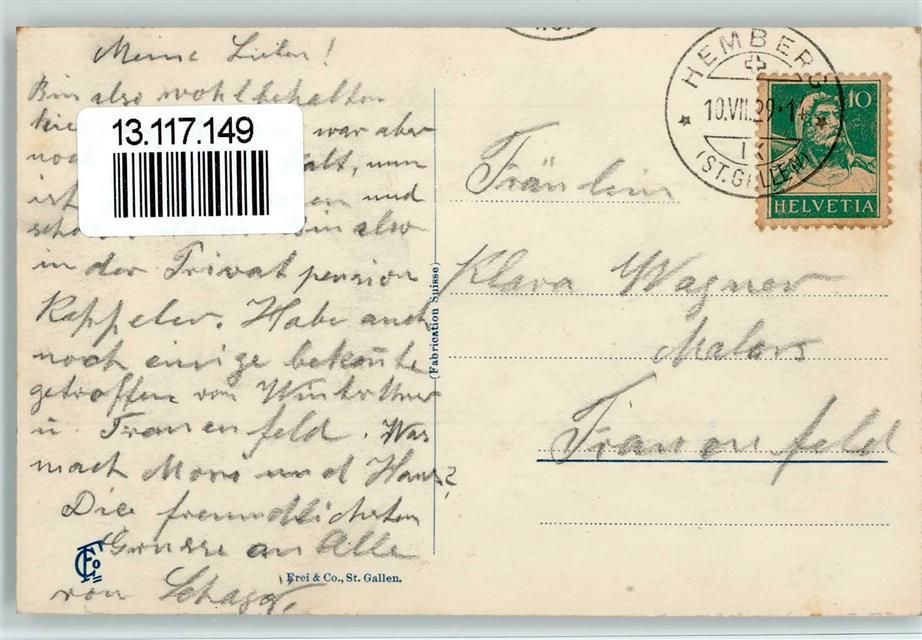 Meine Lieben!
Bin also wohlbehalten
war aber
kalt, nun
ist und
bin also
in der Privat pension
Kappeler. Habe auch
noch einige bekannte
getroffen von Winterthur
u. Frauenfeld. Was
mach Moni und Hans?
Die freundlichsten
Grüsse an Alle
von
13.117.149
HEMBERG
10.VII.29-14
(ST. GALLEN)
10
HELVETIA
Fräulein
Klara Wagner
Malers
Frauenfeld
(Fabrication Suisse)
Frei & Co., St. Gallen.